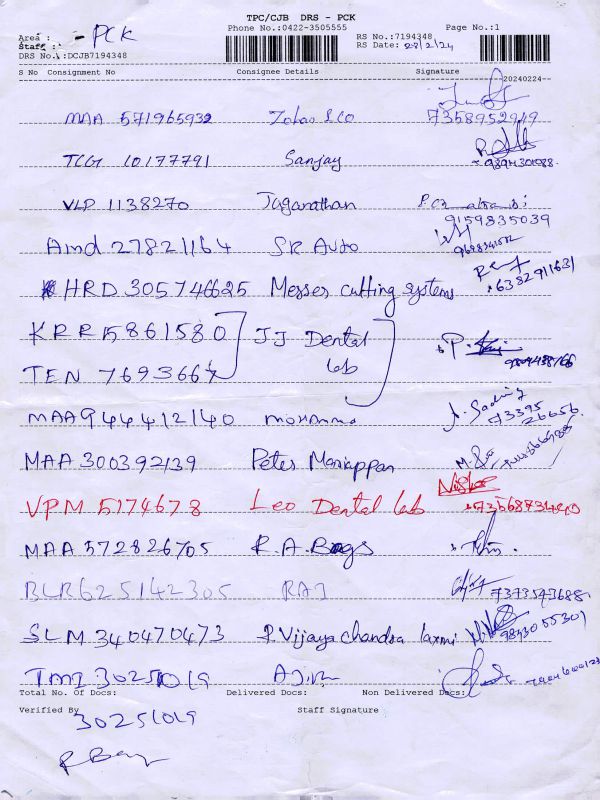 TPC/CJB DRS - PCK
Phone No.:0422-3505555 RS No.:7194348 Page No.:1
Area : - PCK RS Date: 28/2/24
Staff :
DRS No.: DCJB7194348
S No Consignment No Consignee Details Signature
20240224
MAA 571965932 Zohas & Co 7358952949
TCG 10177791 Sanjay 9894301988
VLP 1138270 Jaganathan 9159835039
Amd 27821164 SR Auto
HRD 305746625 Messer cutting systems 6382911631
KRR 15861580 JJ Dental
TEN 7693667 lab
MAA 944412140 Mohanna 73395
MAA 300392139 Peter Mariappan
VPM 5174678 Leo Dental lab
MAA 572826705 R.A. Bags
BLR 625142305 RAJ 7373573688
SLM 340470473 P. Vijaya chandra laxmi 9843055301
TMI 30251019
Total No. Of Docs: Delivered Docs: Non Delivered Docs:
Verified By 30251019 Staff Signature